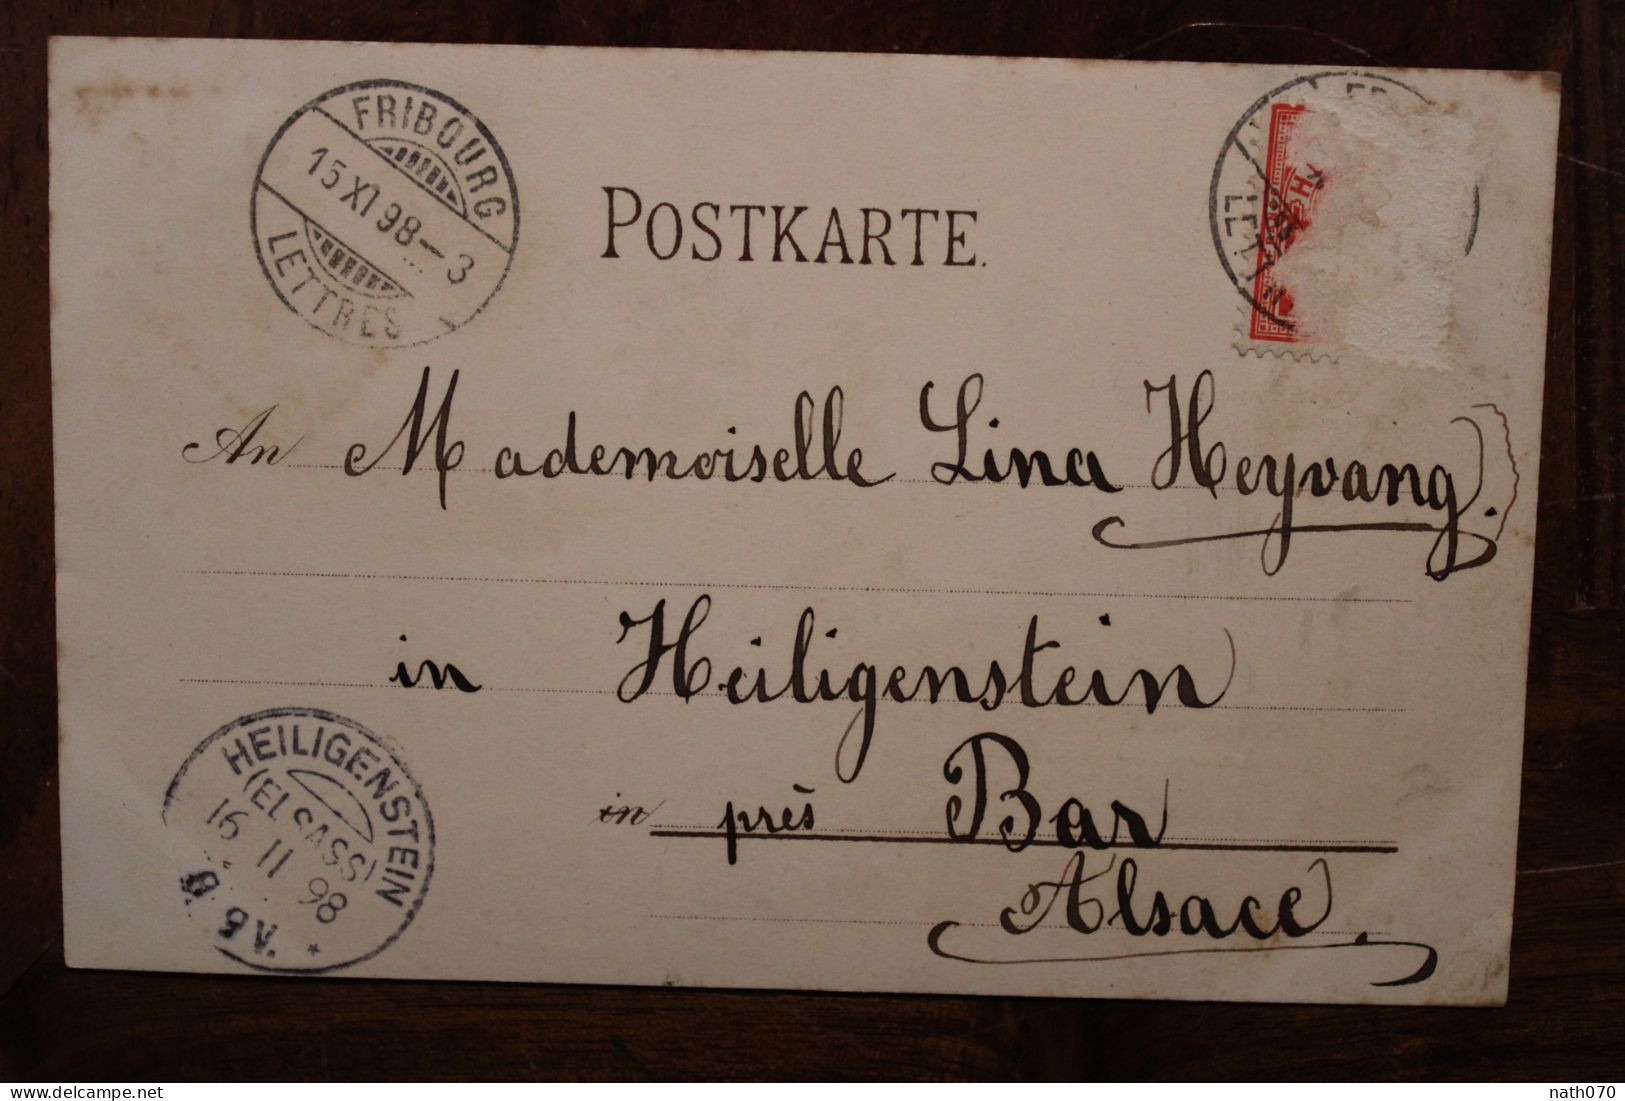 FRIBOURG
15 XI 98 — 3
LETTRES
POSTKARTE.
An Mademoiselle Lina Heyvang.
in Heiligenstein
in près Bar
Alsace.
HEILIGENSTEIN
(ELSASS)
16 11 98
delcampe.net
nath070